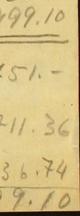 499.10
451.-
11.36
36.74
99.10